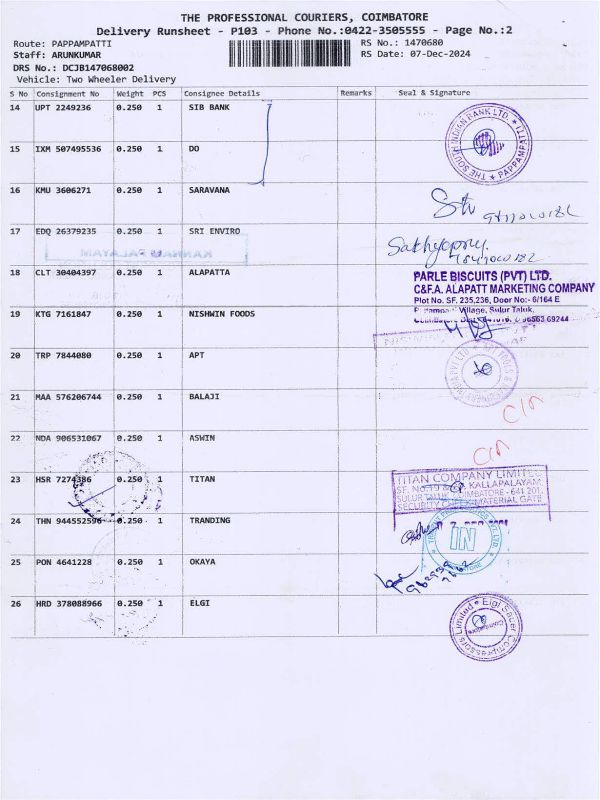 THE PROFESSIONAL COURIERS, COIMBATORE
Delivery Runsheet - P103 - Phone No.:0422-3505555 - Page No.:2
Route: PAPPAMPATTI RS No.: 1470680
Staff: ARUNKUMAR RS Date: 07-Dec-2024
DRS No.: DCJB147068002
Vehicle: Two Wheeler Delivery
S No Consignment No Weight PCS Consignee Details Remarks Seal & Signature
14 UPT 2249236 0.250 1 SIB BANK
THE SOUTH INDIAN BANK LTD. ★ PAPPAMPATTI ★
15 IXM 507495536 0.250 1 DO
16 KMU 3606271 0.250 1 SARAVANA
17 EDQ 26379235 0.250 1 SRI ENVIRO
KANNAMPALAYAM
18 CLT 30404397 0.250 1 ALAPATTA
PARLE BISCUITS (PVT) LTD.
C&F.A. ALAPATT MARKETING COMPANY
Plot No. SF. 235,236, Door No:- 6/164 E
Village, Sulur Taluk,
19 KTG 7161847 0.250 1 NISHWIN FOODS
20 TRP 7844080 0.250 1 APT
21 MAA 576206744 0.250 1 BALAJI
22 NDA 906531067 0.250 1 ASWIN
23 HSR 7274386 0.250 1 TITAN
TITAN COMPANY LIMITED
SF. NO. KALLAPALAYAM,
SULUR TALUK, COIMBATORE - 641 201.
SECURITY CHECK-MATERIAL GATE
24 THN 944552596 0.250 1 TRANDING
IN
25 PON 4641228 0.250 1 OKAYA
26 HRD 378088966 0.250 1 ELGI
Elgi Sauer Compressors Limited
Coimbatore